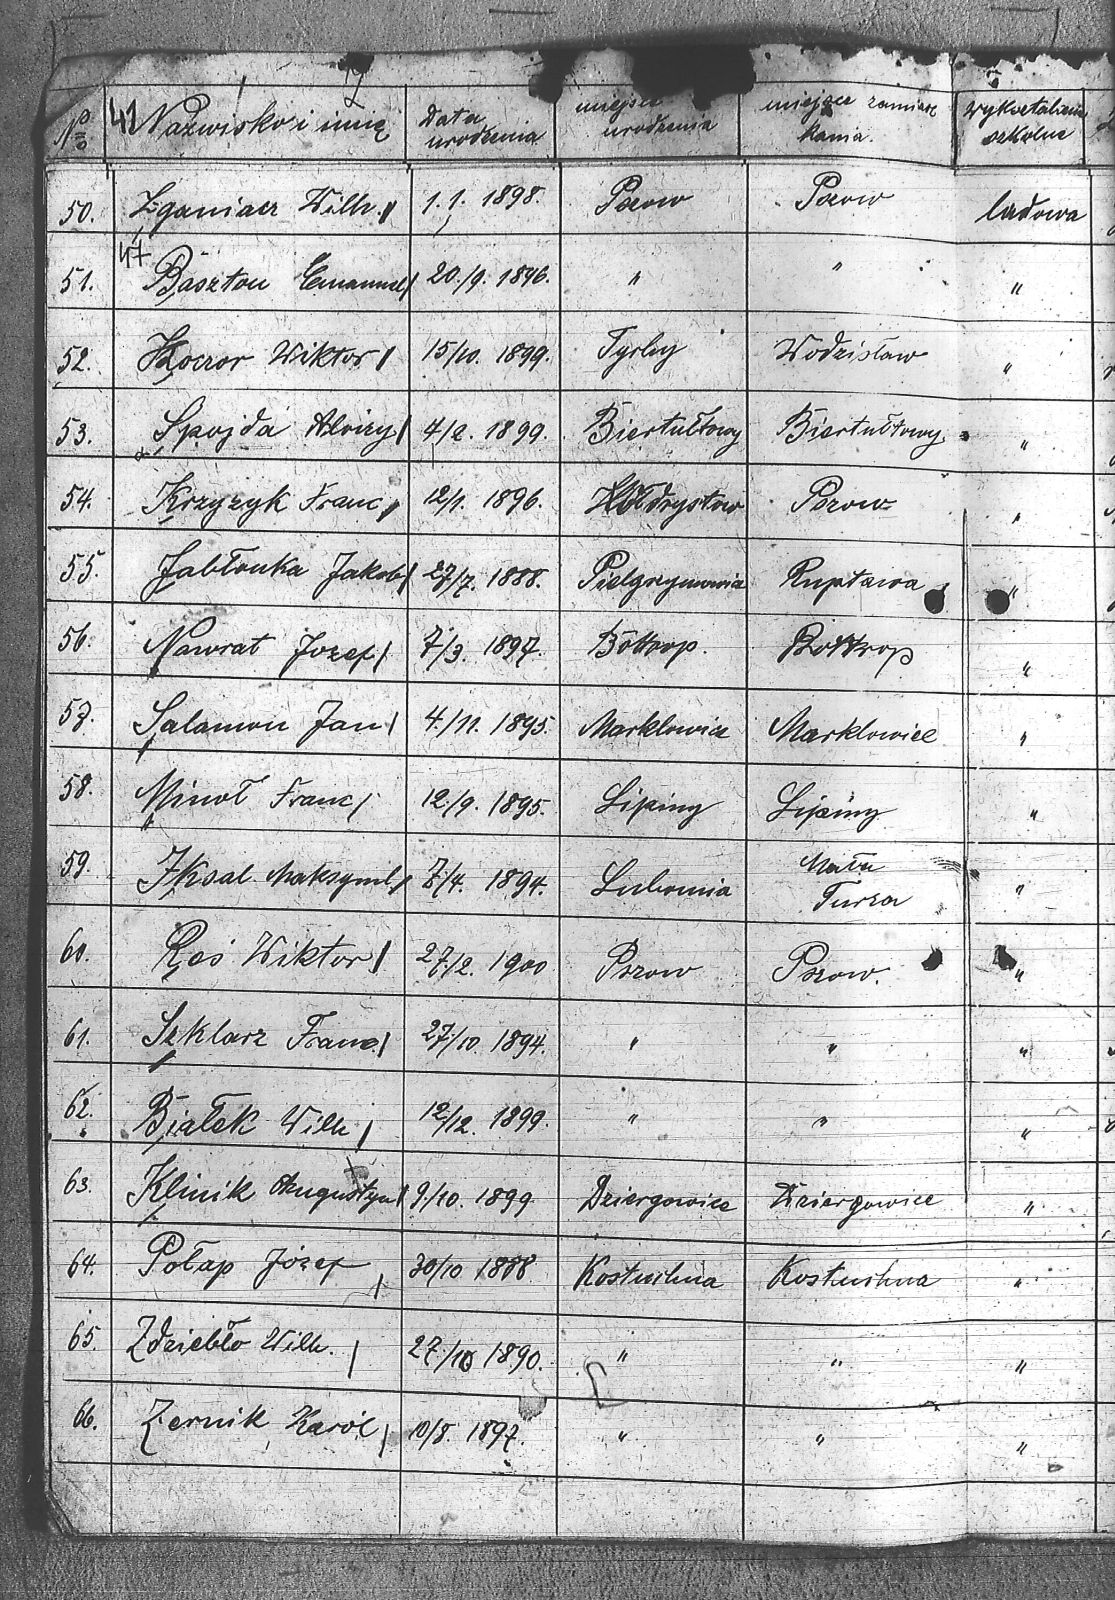 No 42 Nazwisko i imię Data urodzenia miejsce urodzenia miejsce zamiesz kania. wykształcenie szkolne
50. Zganiacz Wilh. 1.1. 1898. Pszow Pszow ludowa
47
51. Baszton Emanuel 20./9. 1896. " " "
52. Koczor Wiktor 15/10. 1899. Wodzisław "
53. Spojda Aloizy 4/2. 1899. Biertułtowy Biertułtowy. "
54. Krzyzyk Franc. 12/1. 1896. Pszow "
55. Jabłonka Jakob 27/7. 1888. Pielgrzymowice Ruptawa "
56. Nawrat Jozef 7/3. 1897. Bottrop. Bottrop "
57. Salamon Jan 4./11. 1895. Marklowice Marklowice "
58. Minoł Franc 12./9. 1895. Lipiny Lipiny "
59. Maksymil. 7/4. 1894. Lubomia Mała Turza "
60. Reś Wiktor 27/2. 1900 Pszow Pszow. "
61. Szklarz Franc. 27/10. 1894. " " "
62. Białek Wilh 12/12. 1899. " " "
63. Klinik Augustyn 9/10. 1899 Dziergowice Dziergowice "
64. Potap Józef 30/10 1888 Kostuchna Kostuchna "
65. Zdziebło Wilh. 27/10 1890. " " "
66. Zernik Karól 10/8. 1897. " " "